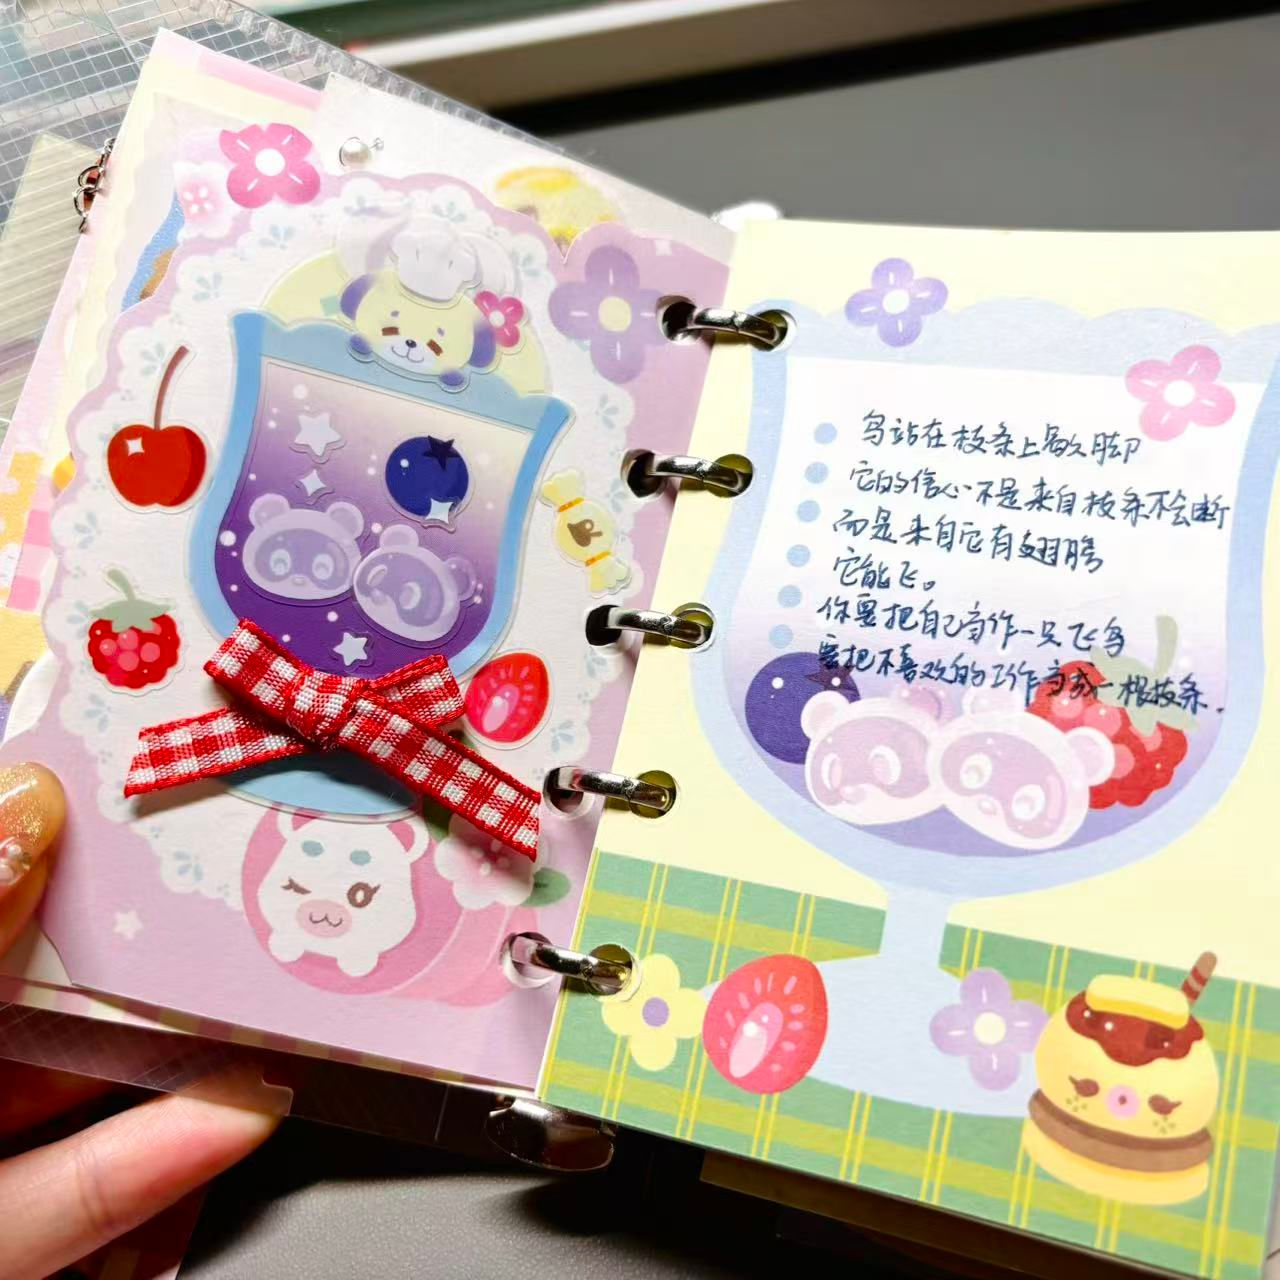 鸟站在枝条上歇脚
它的信心不是来自枝条不会断
而是来自它有翅膀
它能飞。
你要把自己当作一只飞鸟
要把不喜欢的工作当成一根枝条.